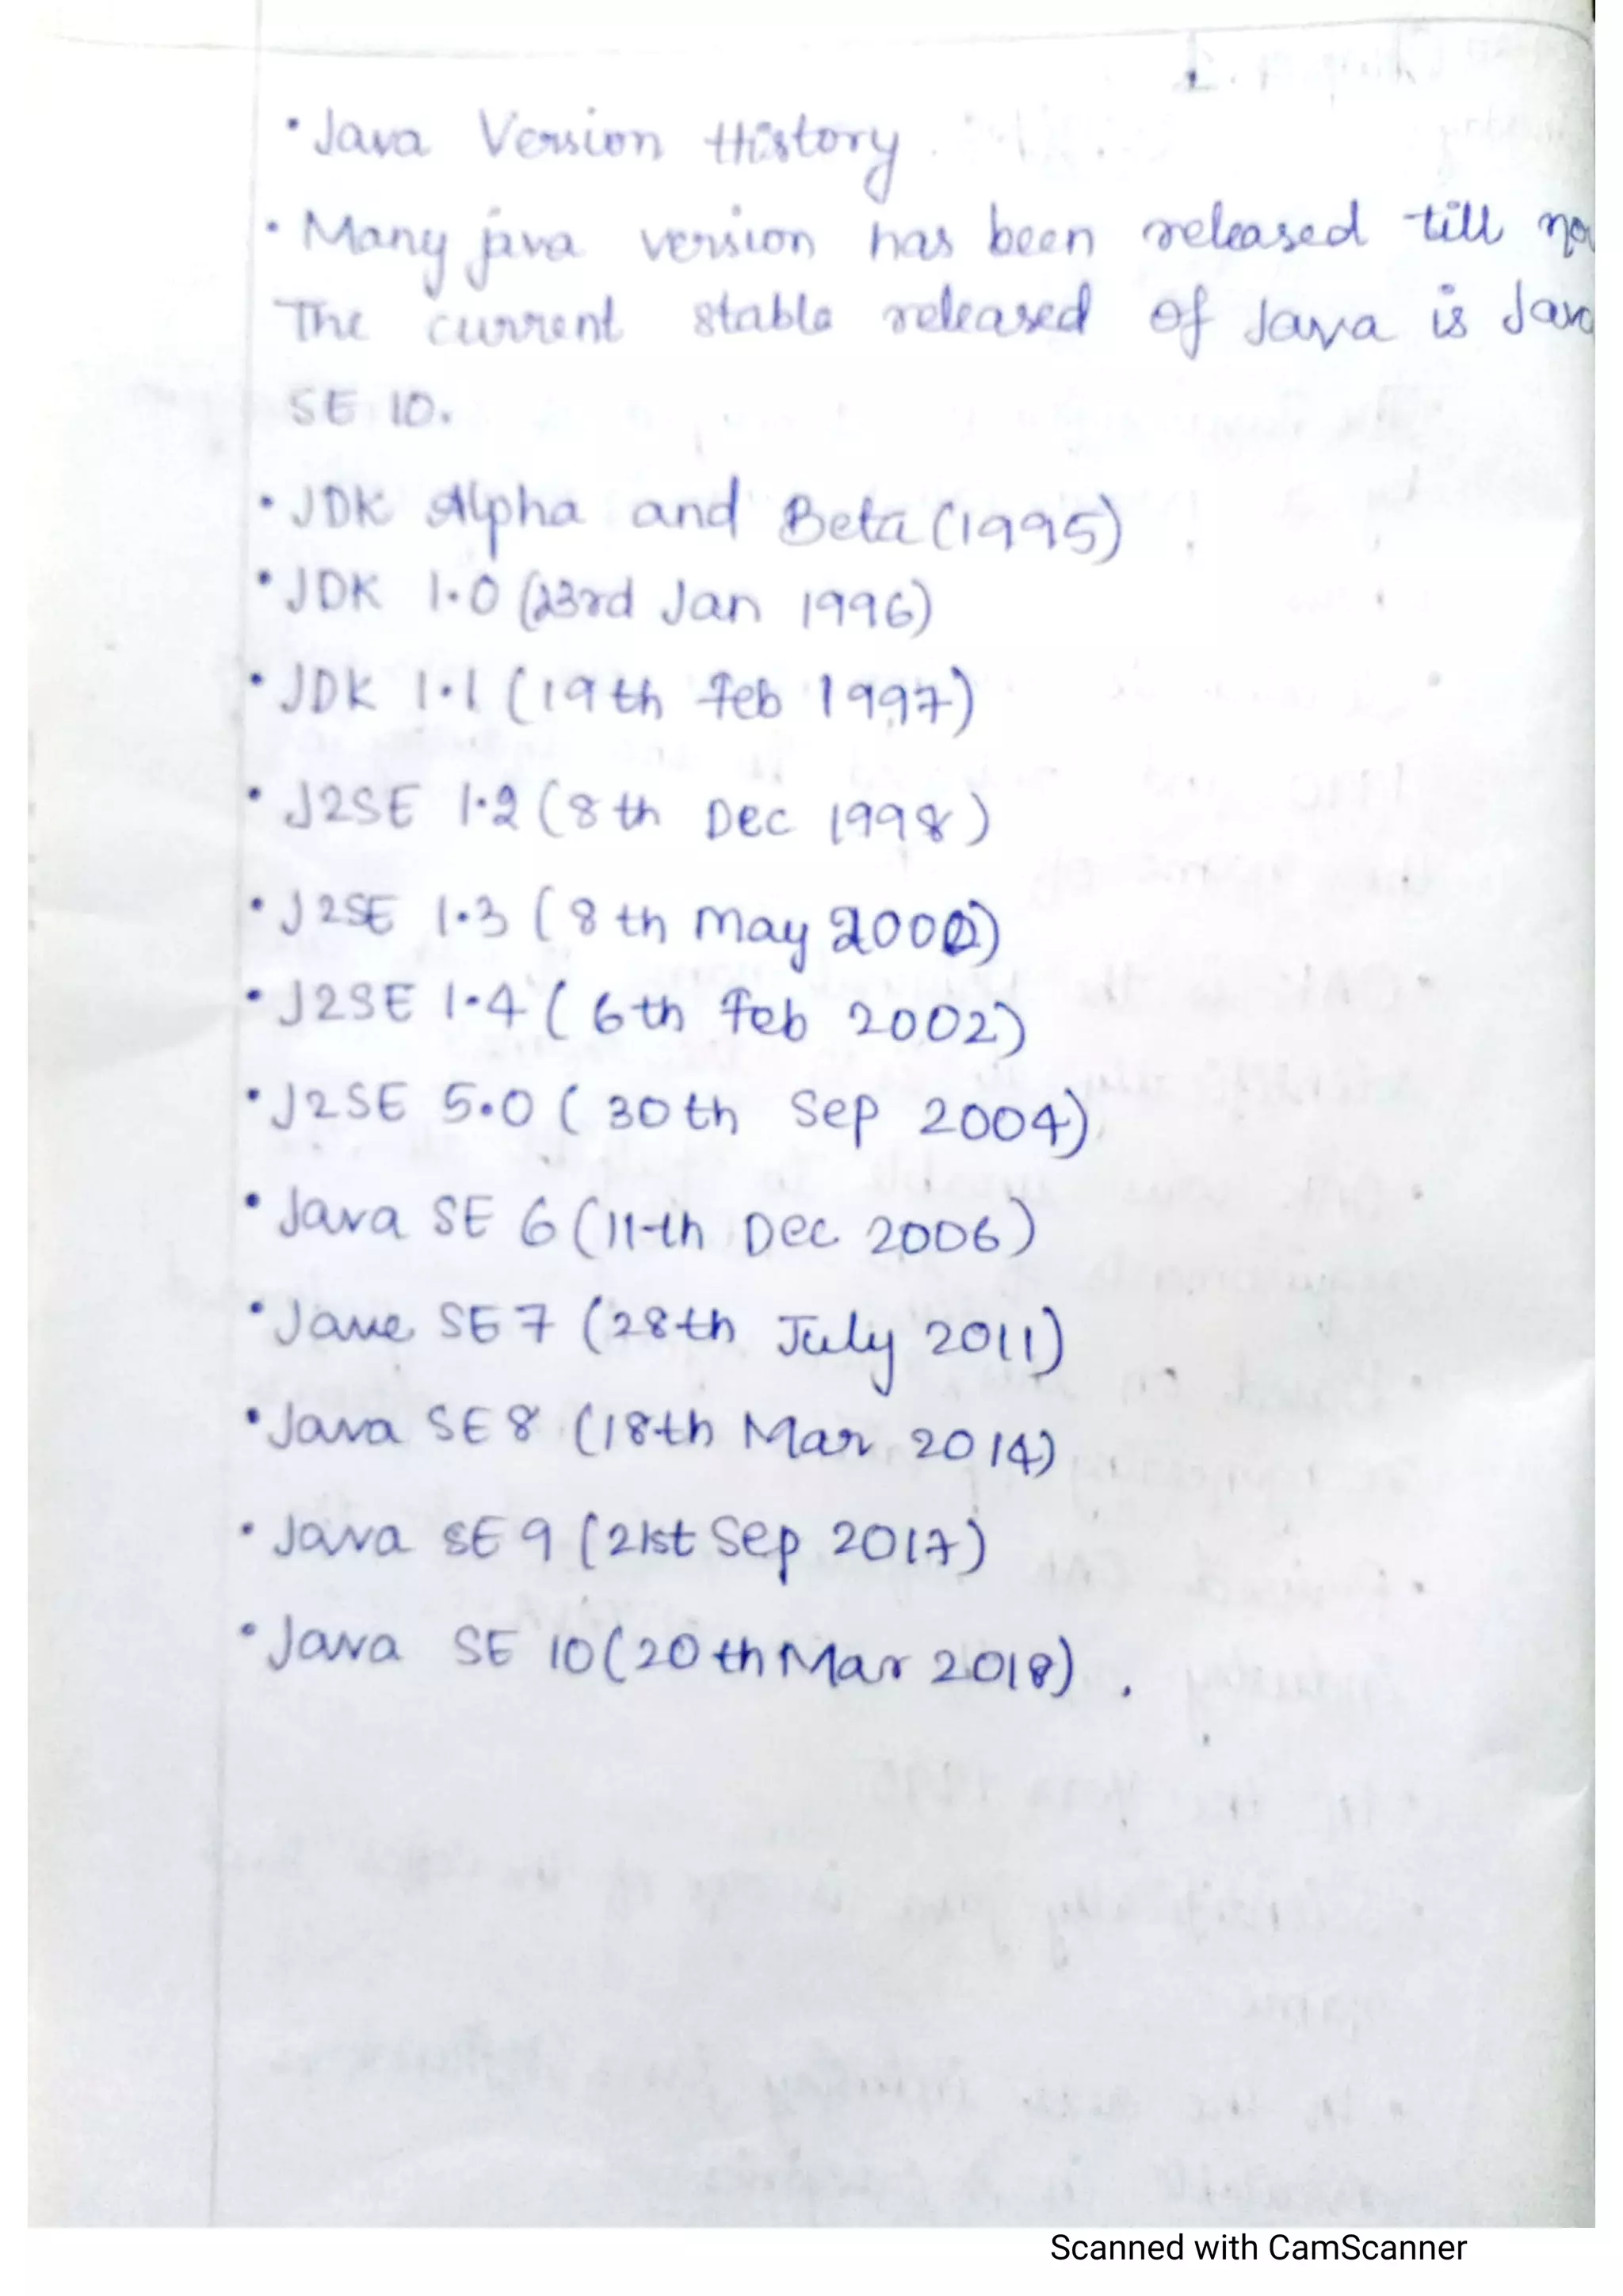 • Java Version History
• Many java version has been released till no
The current stable released of Java is Java
SE 10.
• JDK Alpha and Beta (1995)
• JDK 1.0 (23rd Jan 1996)
• JDK 1.1 (19th Feb 1997)
• J2SE 1.2 (8th Dec 1998)
• J2SE 1.3 (8th May 2000)
• J2SE 1.4 (6th Feb 2002)
• J2SE 5.0 (30th Sep 2004)
• Java SE 6 (11th Dec 2006)
• Jave SE 7 (28th July 2011)
• Java SE 8 (18th Mar 2014)
• Java SE 9 (21st Sep 2017)
• Java SE 10 (20th Mar 2018).
Scanned with CamScanner